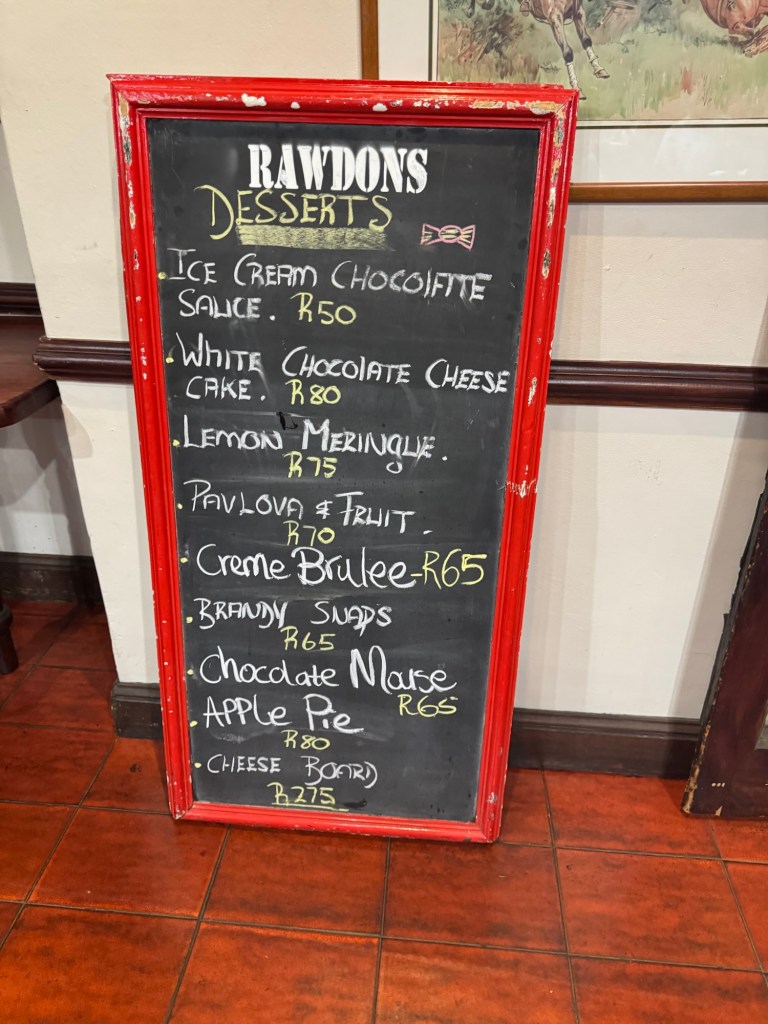 RAWDONS
DESSERTS
. ICE CREAM CHOCOLATE
SAUCE. R50
. WHITE CHOCOLATE CHEESE
CAKE. R80
. LEMON MERINGUE.
R75
. PAVLOVA & FRUIT.
R70
. Creme Brulee-R65
. BRANDY SNAPS
R65
. Chocolate Mouse
R65
. APPle Pie
R80
. CHEESE BOARD
R275